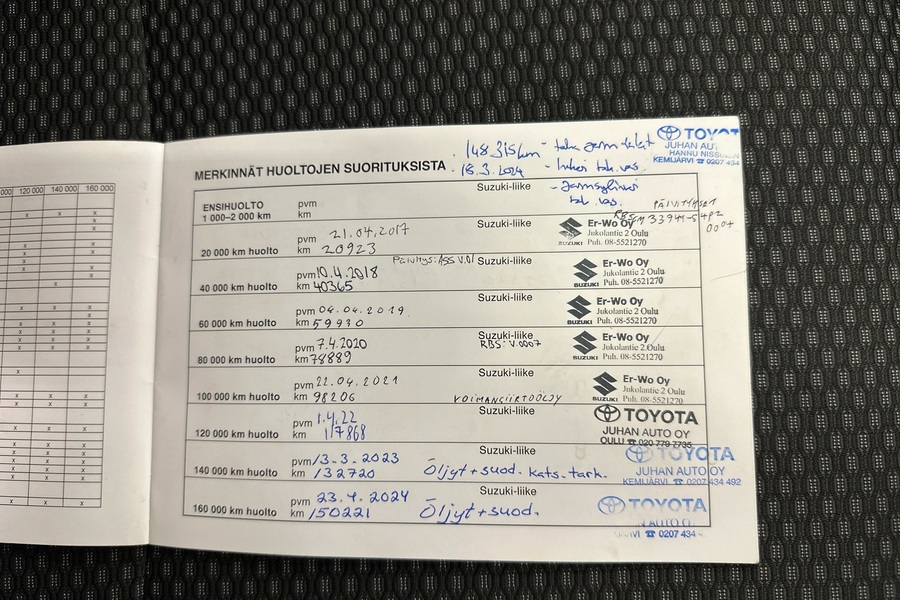 000 120 000 140 000 160 000
MERKINNÄT HUOLTOJEN SUORITUKSISTA
148.315km - taka
18.3.2024
- Jarrusylinteri
tak. vas.
TOYOTA
JUHAN AU
HANNU NISS
KEMIJÄRVI ☎ 0207 434
PÄIVITYKSET
ENSIHUOLTO
1 000–2 000 km
pvm
km
Suzuki-liike
20 000 km huolto
pvm 21.04.2017
km 20923
Suzuki-liike
SUZUKI
Er-Wo Oy
Jukolantie 2 Oulu
Puh. 08-5521270
40 000 km huolto
pvm 10.4.2018
km 40365
Päivitys: ASS V.01
Suzuki-liike
SUZUKI
Er-Wo Oy
Jukolantie 2 Oulu
Puh. 08-5521270
60 000 km huolto
pvm 04.04.2019.
km 59930
Suzuki-liike
SUZUKI
Er-Wo Oy
Jukolantie 2 Oulu
Puh. 08-5521270
80 000 km huolto
pvm 7.4.2020
km 78889
Suzuki-liike
RBS: V.0007
SUZUKI
Er-Wo Oy
Jukolantie 2 Oulu
Puh. 08-5521270
100 000 km huolto
pvm 22.04.2021
km 98206
Suzuki-liike
VOIMANSIIRTOÖLJY
SUZUKI
Er-Wo Oy
Jukolantie 2 Oulu
Puh. 08-5521270
120 000 km huolto
pvm 1.4.22
km 117868
Suzuki-liike
TOYOTA
JUHAN AUTO OY
OULU ☎ 020 779 7735
140 000 km huolto
pvm 13.3.2023
km 132720
Suzuki-liike
Öljyt + suod. kats. tark.
TOYOTA
JUHAN AUTO OY
KEMIJÄRVI ☎ 0207 434 492
160 000 km huolto
pvm 23.4.2024
km 150221
Suzuki-liike
Öljyt + suod.
TOYOTA
N AUTO O
☎ 0207 434